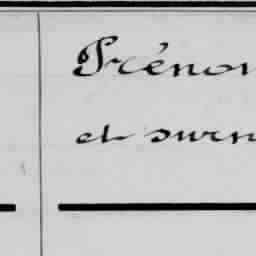 Prénon
et surn